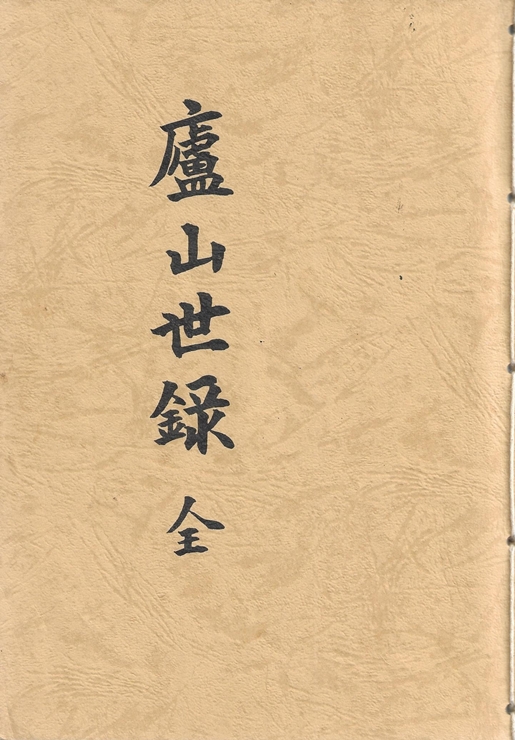 廬山世錄 全